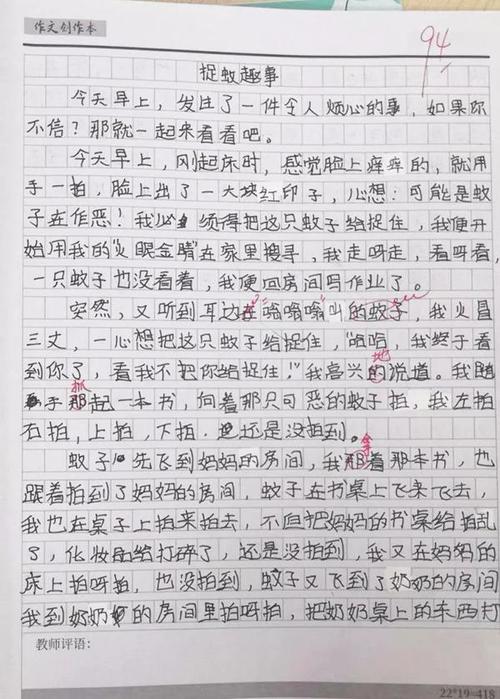 作文创作本
94
捉蚊趣事
今天早上，发生了一件令人烦心的事，如果你
不信？那就一起来看看吧。
今天早上，刚起床时，感觉脸上痒痒的，就用
手一拍，脸上出了一大块红印子，心想：可能是蚊
子在作恶！我必须得把这只蚊子给捉住，我便开
始用我的“火眼金睛”在家里搜寻，我走呀走，看呀看，
一只蚊子也没看着，我便回房间写作业了。
突然，又听到耳边在“嗡嗡嗡”叫的蚊子，我火冒
三丈，一心想把这只蚊子给捉住，“哈哈，我终于看
到你了，看我不把你给捉住！”我高兴的地说道。我随
手那抓起一本书，向着那只可恶的蚊子拍，我左拍
右拍，上拍，下拍，也还是没拍到。
蚊子先飞到妈妈的房间，我那拿着那本书，也
跟着拍到了妈妈的房间，蚊子在书桌上飞来飞去，
我也在桌子上拍来拍去，不但把妈妈的书桌给拍乱
了，化妆品给打碎了，还是没拍到，我又在妈妈的
床上拍呀拍，也没拍到，蚊子又飞到了奶奶的房间
我到奶奶的房间里拍呀拍，把奶奶桌上的东西打
教师评语：
22*19=418